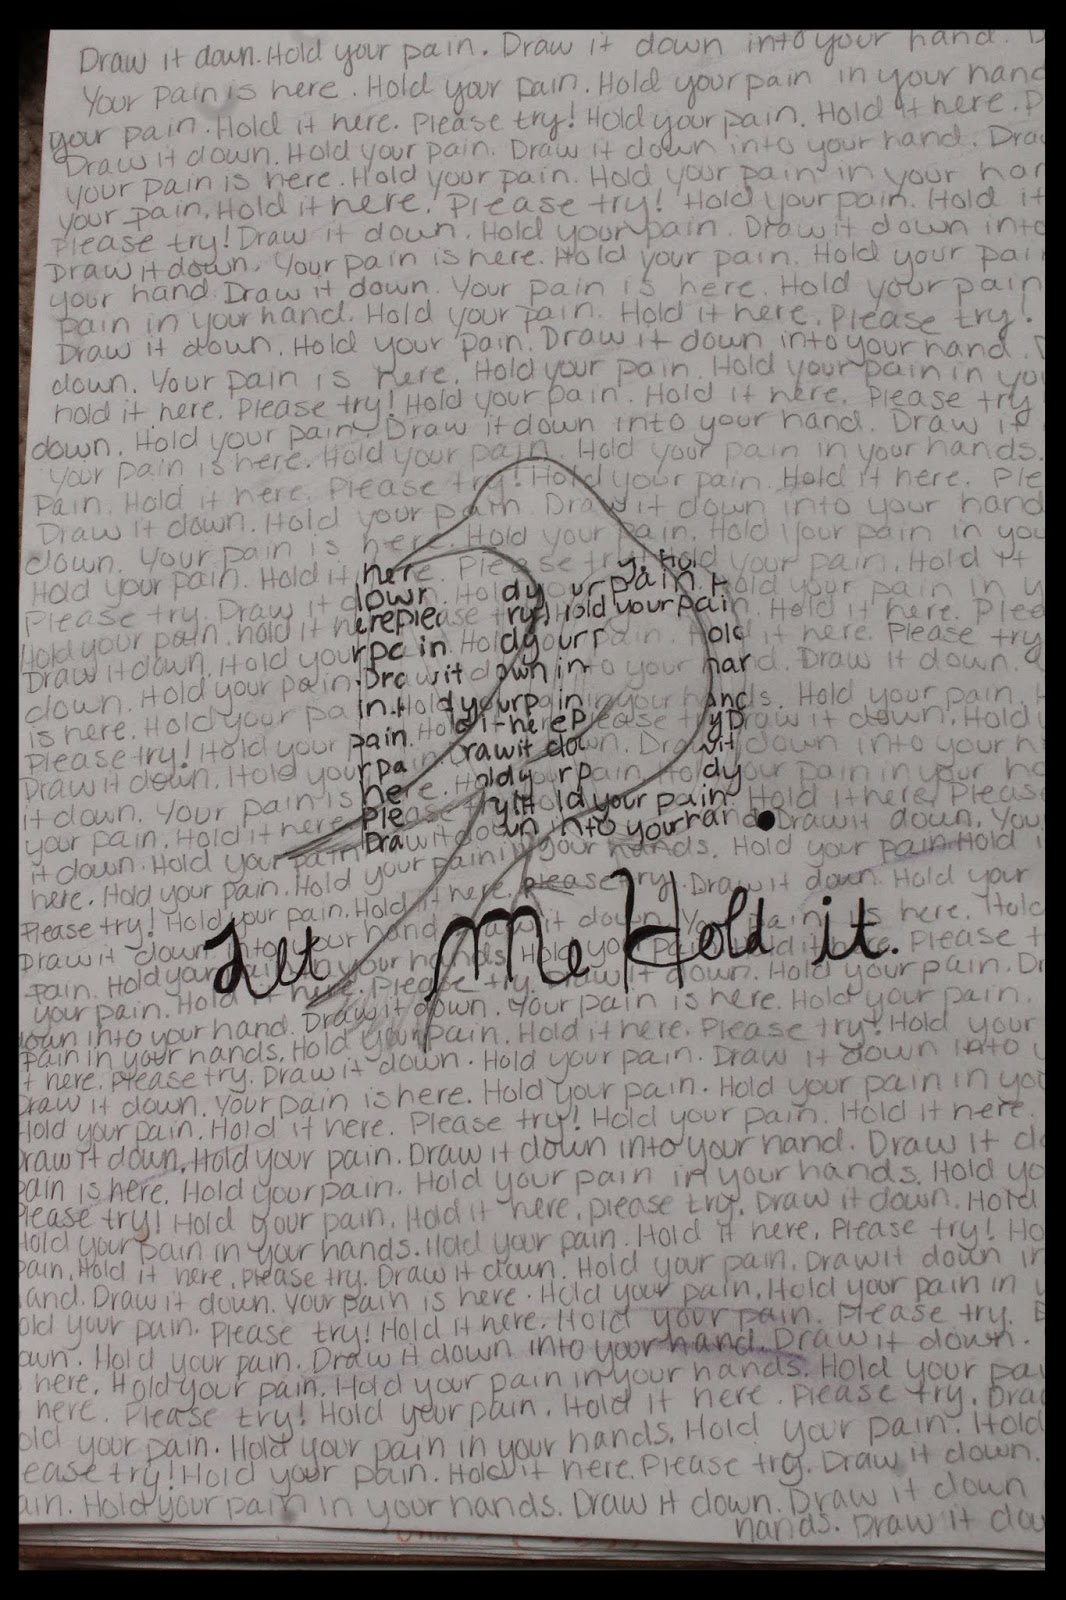 Draw it down. Hold your pain. Draw it down into your hand.
Your pain is here. Hold your pain. Hold your pain in your hand
your pain. Hold it here. Please try! Hold your pain. Hold it here.
Draw it down. Hold your pain. Draw it down into your hand. Draw
your pain is here. Hold your pain. Hold your pain in your han
your pain. Hold it here. Please try! Hold your pain. Hold it
Please try! Draw it down. Hold your pain. Draw it down into
Draw it down. Your pain is here. Hold your pain. Hold your pai
your hand. Draw it down. Your pain is here. Hold your pain
pain in your hand. Hold your pain. Hold it here. Please try!
Draw it down. Hold your pain. Draw it down into your hand.
down. Your pain is here. Hold your pain. Hold your pain in you
hold it here. Please try! Hold your pain. Hold it here. Please try
down. Hold your pain. Draw it down into your hand. Draw it
Your pain is here. Hold your pain. Hold your pain in your hands.
Pain. Hold it here. Please try! Hold your pain. Hold it here. Ple
Draw it down. Hold your pain. Draw it down into your hand
down. Your pain is here. Hold your pain. Hold your pain in you
Hold your pain. Hold it here. Please try. Hold your pain. Hold it
Please try. Draw it down. Hold your pain. Hold your pain in y
Hold your pain. hold it here please try! Hold your pain. Hold it here. Plee
Draw it down. Hold your pain. Hold your pain. Hold it here. Please try
down. Hold your pain. Draw it down into your hand. Draw it down.
is here. Hold your pain. Hold your pain in your hands. Hold your pain.
Please try! Hold your pain. Hold it here Please try Draw it down. Hold
Draw it down. Hold your pain. Draw it down. Draw it down into your h
it down. Your pain is here. Hold your pain. Hold your pain in your ha
your pain. Hold it here. Please try! Hold your pain. Hold it here. Please
it down. Hold your pain. Draw it down into your hand. Draw it down. You
here. Hold your pain. Hold your pain in your hands. Hold your pain. Hold i
Please try! Hold your pain. Hold it here. please try. Draw it down. Hold your
Draw it down into your hand. Draw it down. Your pain is here. Hold
Let Me Hold it.
pain. Hold your pain in your hands. Hold your pain. Hold it here. Please t
your pain. Hold it here. Please try. Draw it down. Hold your pain. Dr
down into your hand. Draw it down. Your pain is here. Hold your pain.
Pain in your hands. Hold your pain. Hold it here. Please try! Hold your
t here. Please try. Draw it down. Hold your pain. Draw it down into
Draw it down. Your pain is here. Hold your pain. Hold your pain in you
Hold your pain. Hold it here. Please try! Hold your pain. Hold it here.
raw it down. Hold your pain. Draw it down into your hand. Draw it do
pain is here. Hold your pain. Hold your pain in your hands. Hold yo
lease try! Hold your pain. Hold it here. please try. Draw it down. Hold
Hold your pain in your hands. Hold your pain. Hold it here. Please try! Ho
pain. Hold it here. please try. Draw it down. Hold your pain. Draw it down in
and. Draw it down. Your pain is here. Hold your pain. Hold your pain in
old your pain. Please try! Hold it here. Hold your pain. Please try.
own. Hold your pain. Draw it down into your hand. Draw it down.
here. Hold your pain. Hold your pain in your hands. Hold your pai
here. Please try! Hold your pain. Hold it here. Please try. Dra
old your pain. Hold your pain in your hands. Hold your pain. Hold
ease try! Hold your pain. Hold it here. Please try. Draw it down.
ain. Hold your pain in your hands. Draw it down. Draw it down
hands. Draw it dow